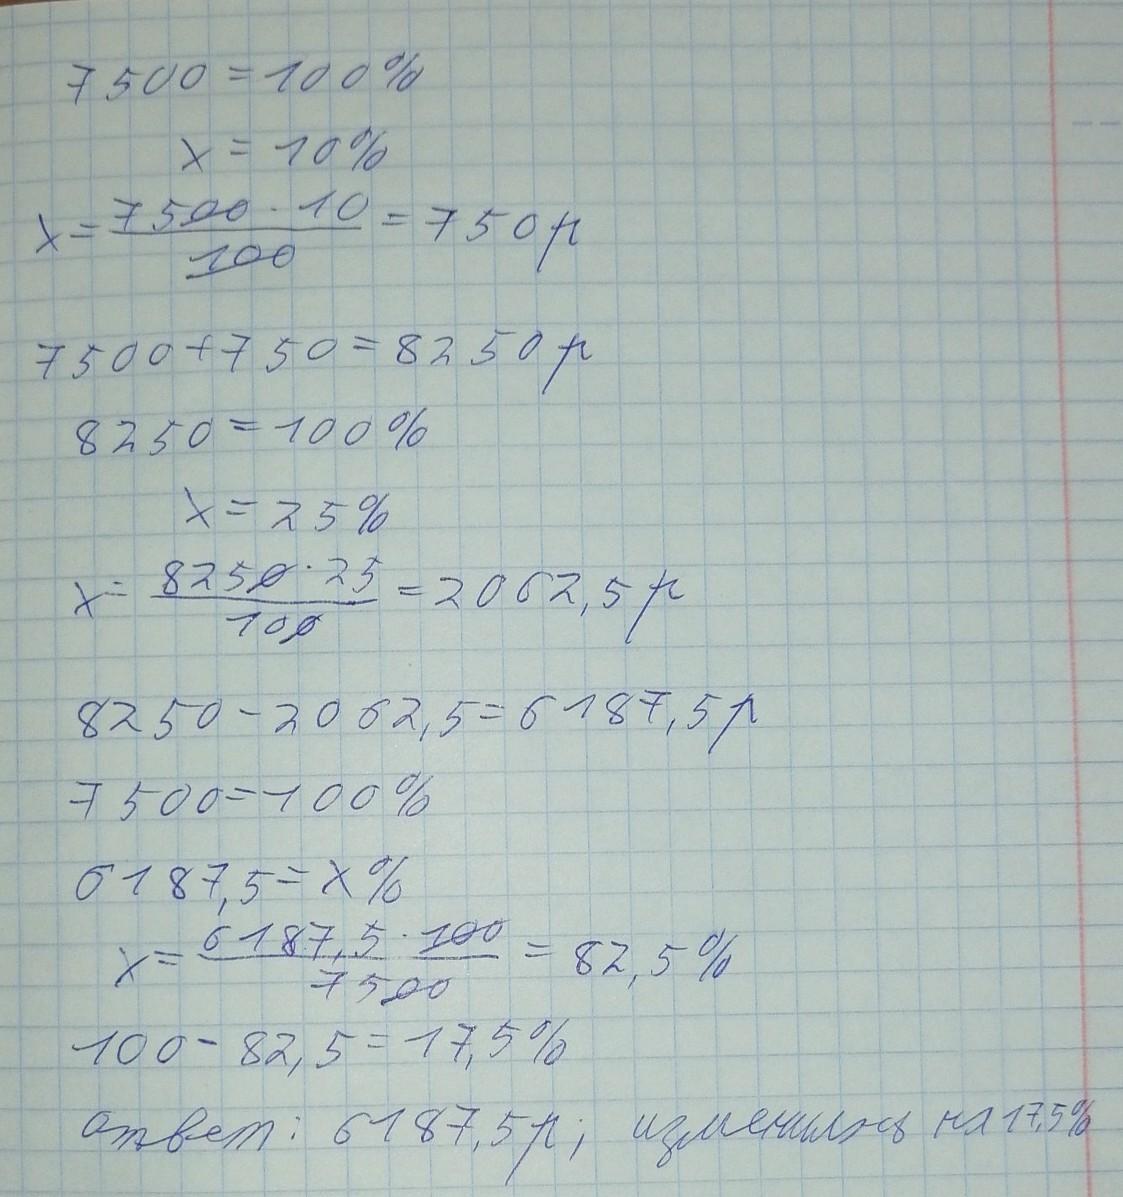 7500 = 100%
x = 10%
x = 7500 · 10 / 100 = 750р
7500 + 750 = 8250р
8250 = 100%
x = 25%
x = 8250 · 25 / 100 = 2062,5р
8250 - 2062,5 = 6187,5р
7500 = 100%
6187,5 = x%
x = 6187,5 · 100 / 7500 = 82,5%
100 - 82,5 = 17,5%
ответ: 6187,5р; изменилась на 17,5%